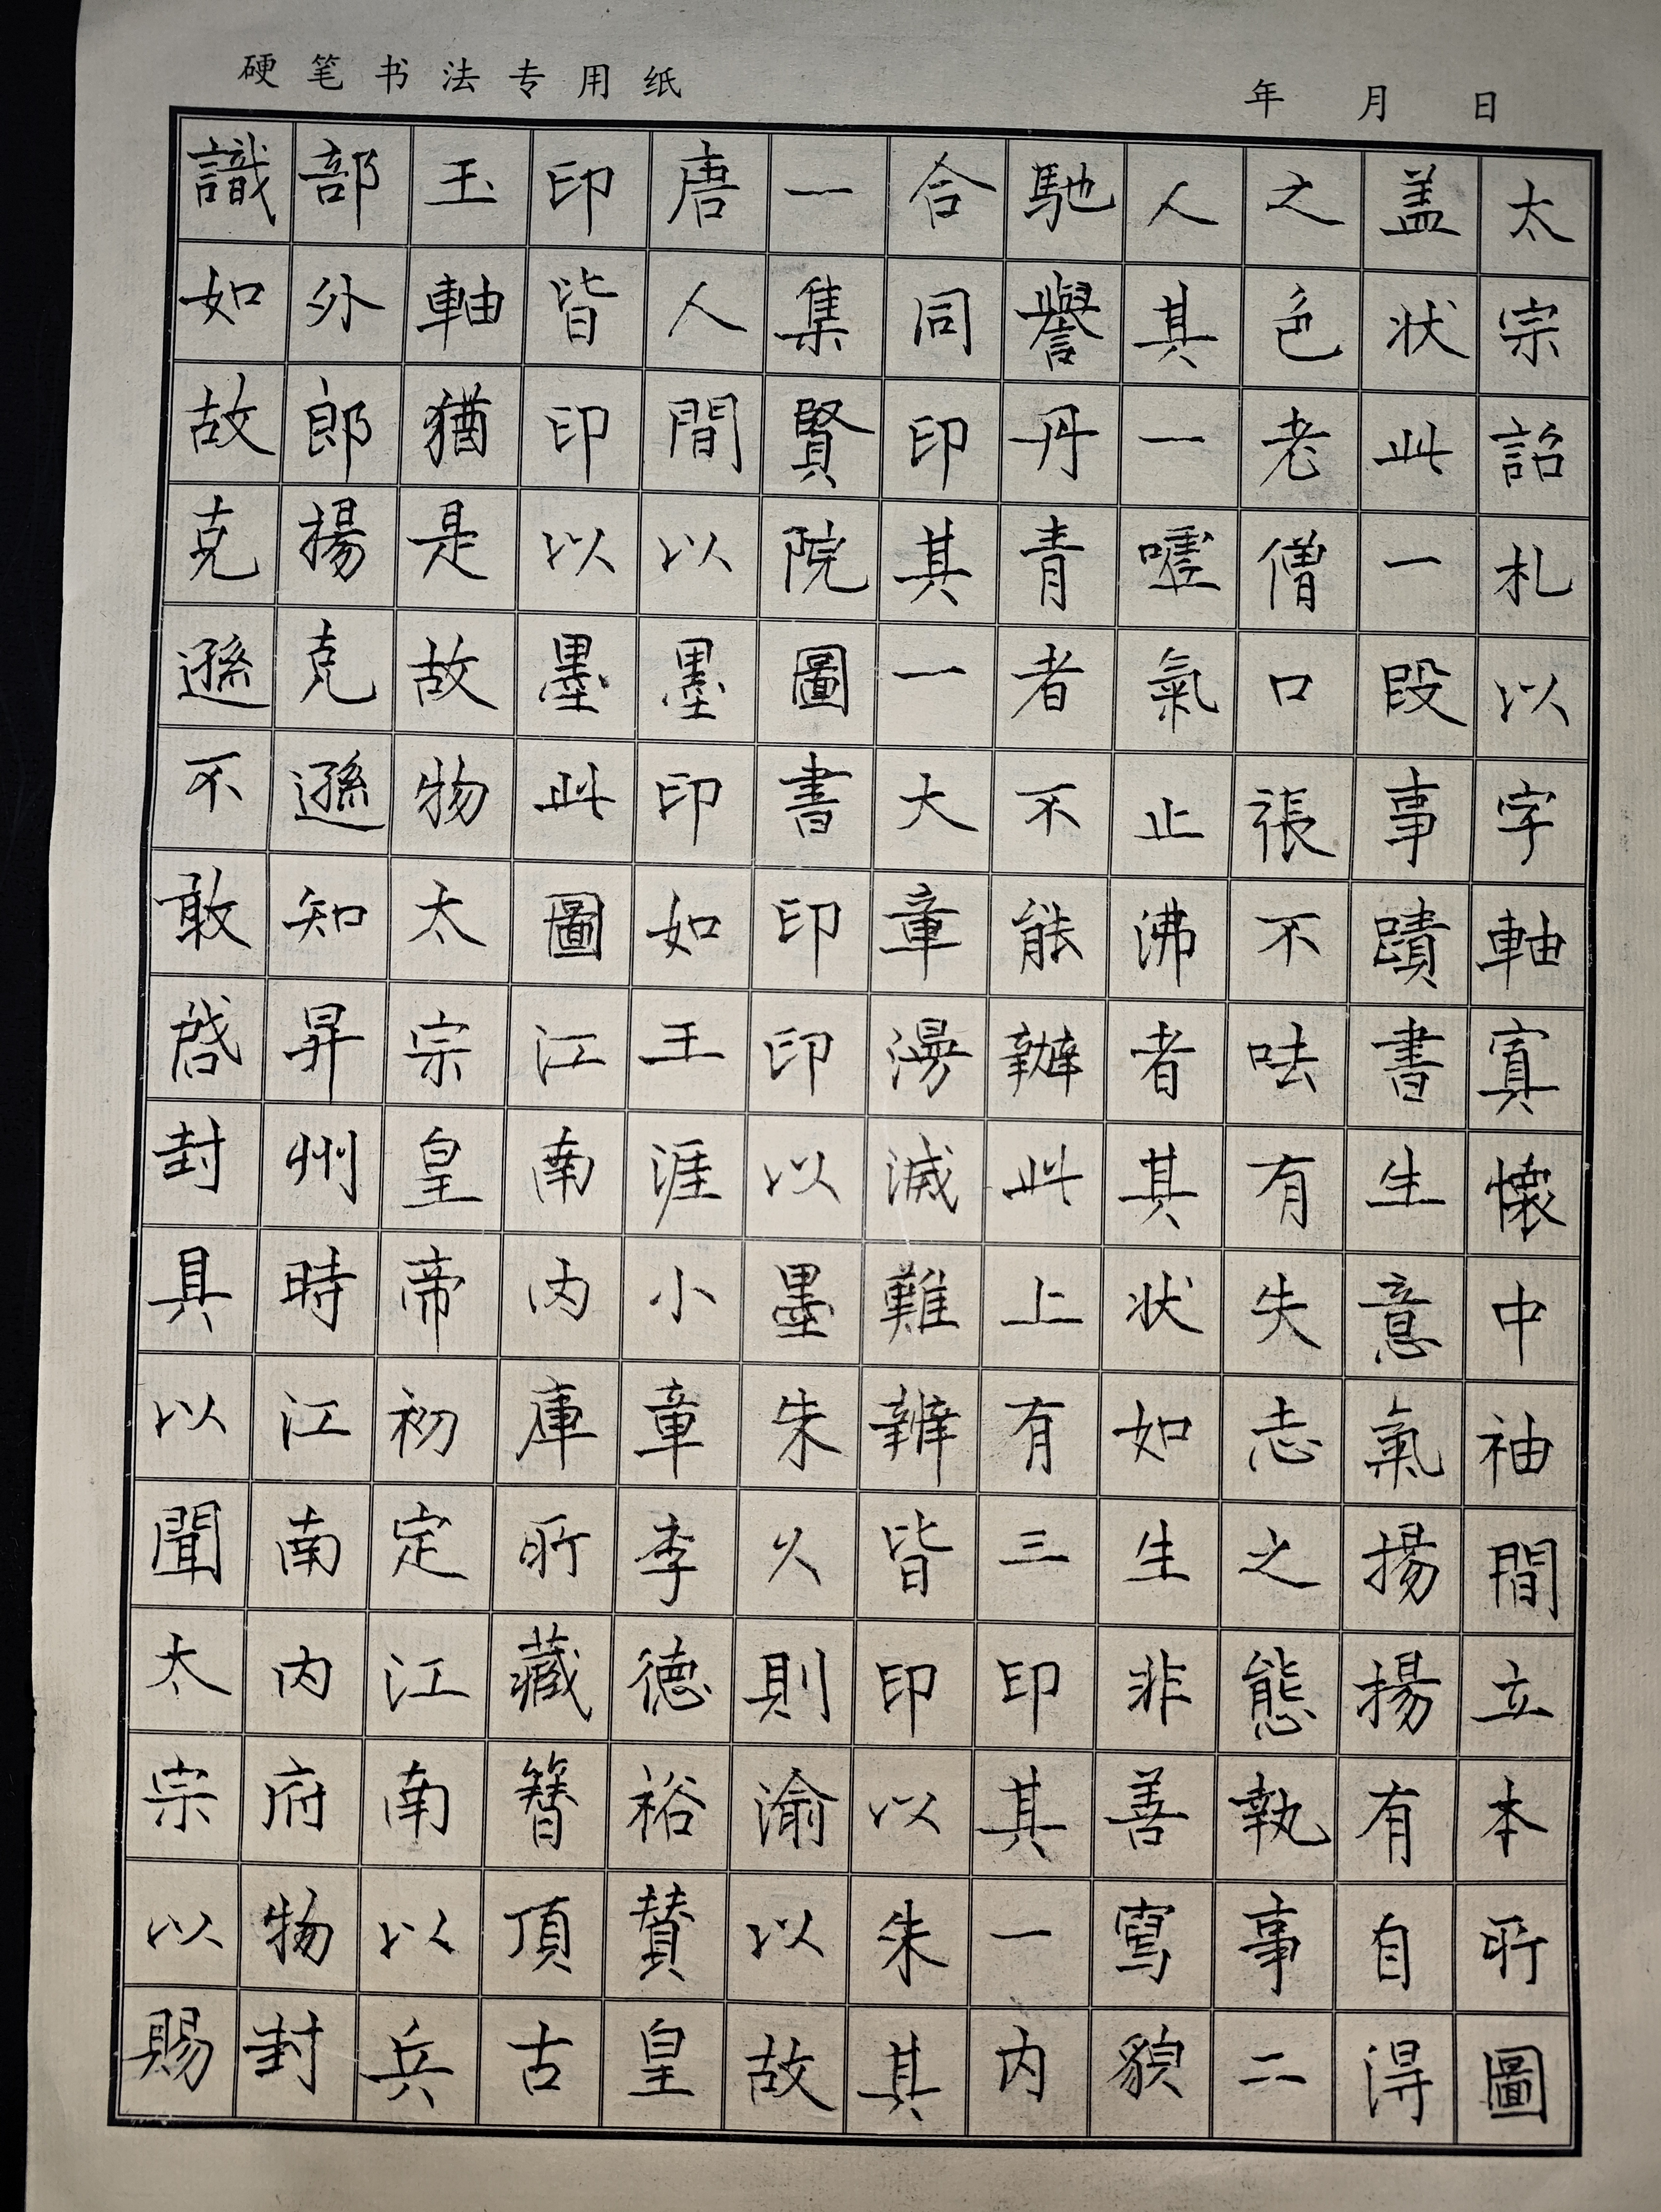 硬笔书法专用纸
年 月 日
太宗詔札以字軸寘懷中袖間立本所圖
盖状此一段事蹟書生意氣揚揚有自淂
之色老僧口張不呿有失志之態執事二
人其一嘘氣止沸者其状如生非善寫貌
馳譽丹青者不能辦此上有三印其一内
合同印其一大章漫滅難辨皆印以朱其
一集賢院圖書印印以墨朱久則渝以故
唐人間以墨印如王涯小章李德裕贊皇
印皆印以墨此圖江南内庫所藏簪頂古
玉軸猶是故物太宗皇帝初定江南以兵
部外郎揚克遜知昇州時江南内府物封
識如故克遜不敢啓封具以聞太宗以賜